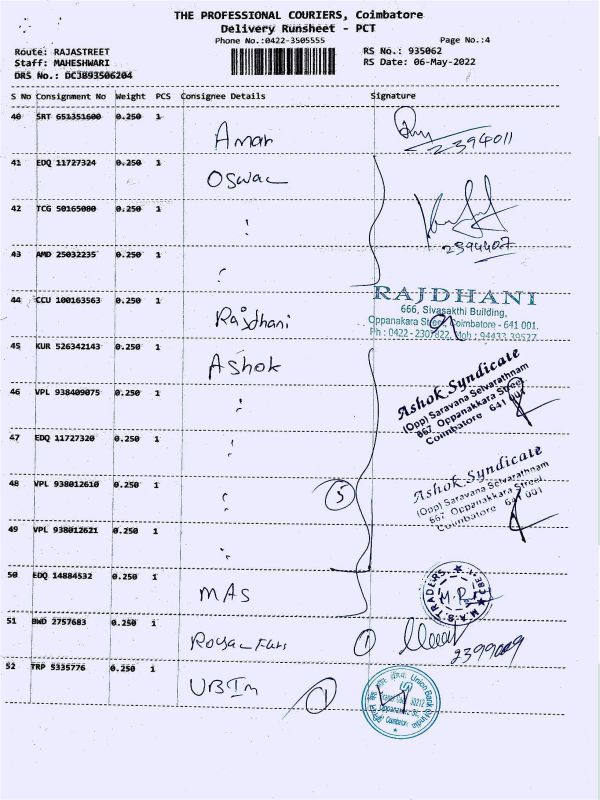 THE PROFESSIONAL COURIERS, Coimbatore
Delivery Runsheet - PCT
Phone No.:0422-3505555 Page No.:4
Route: RAJASTREET RS No.: 935062
Staff: MAHESHWARI RS Date: 06-May-2022
DRS No.: DCJB93506204
S No Consignment No Weight PCS Consignee Details Signature
40 SRT 651351600 0.250 1
Amar 2394011
41 EDQ 11727324 0.250 1
Oswal
42 TCG 50165080 0.250 1
"
2394407
43 AMD 25032235 0.250 1
"
44 CCU 100163563 0.250 1 RAJDHANI
666, Sivasakthi Building,
Rajdhani Oppanakara Street, Coimbatore - 641 001.
Ph : 0422 - 2307822, Moh : 94433 39527
45 KUR 526342143 0.250 1
Ashok
46 VPL 938409075 0.250 1 Ashok Syndicate
" (Opp) Saravana Selvarathnam
867, Oppanakkara Street
Coimbatore 641 001
47 EDQ 11727320 0.250 1
"
48 VPL 938012610 0.250 1 Ashok Syndicate
" 5 (Opp) Saravana Selvarathnam
867, Oppanakkara Street
Coimbatore 641 001
49 VPL 938012621 0.250 1
"
50 EDQ 14884532 0.250 1
MAS M.A.S. TRADERS
51 BWD 2757683 0.250 1
1 2399009
52 TRP 5335776 0.250 1
UBIm 1 Union Bank of India
Coimbatore